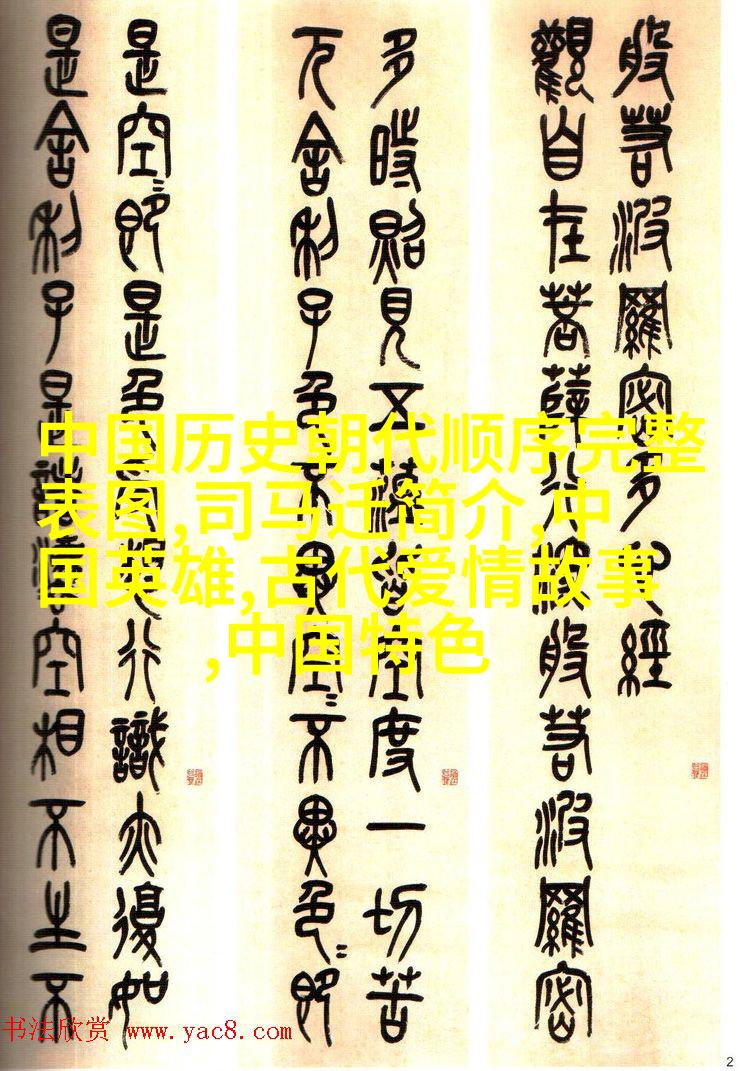 般若波羅密多心經
觀自在菩薩行深般若波羅密
多時照見五蘊皆空度一切苦
厄舍利子色不異空〻不異色〻即
是空〻即是色受想行識亦復如
是舍利子是諸法空相不生不
中国历史朝代顺序完整
表图,司马迁简介,中
国英雄,古代爱情故事
,中国特色
书法欣赏 www.yac8.com
2